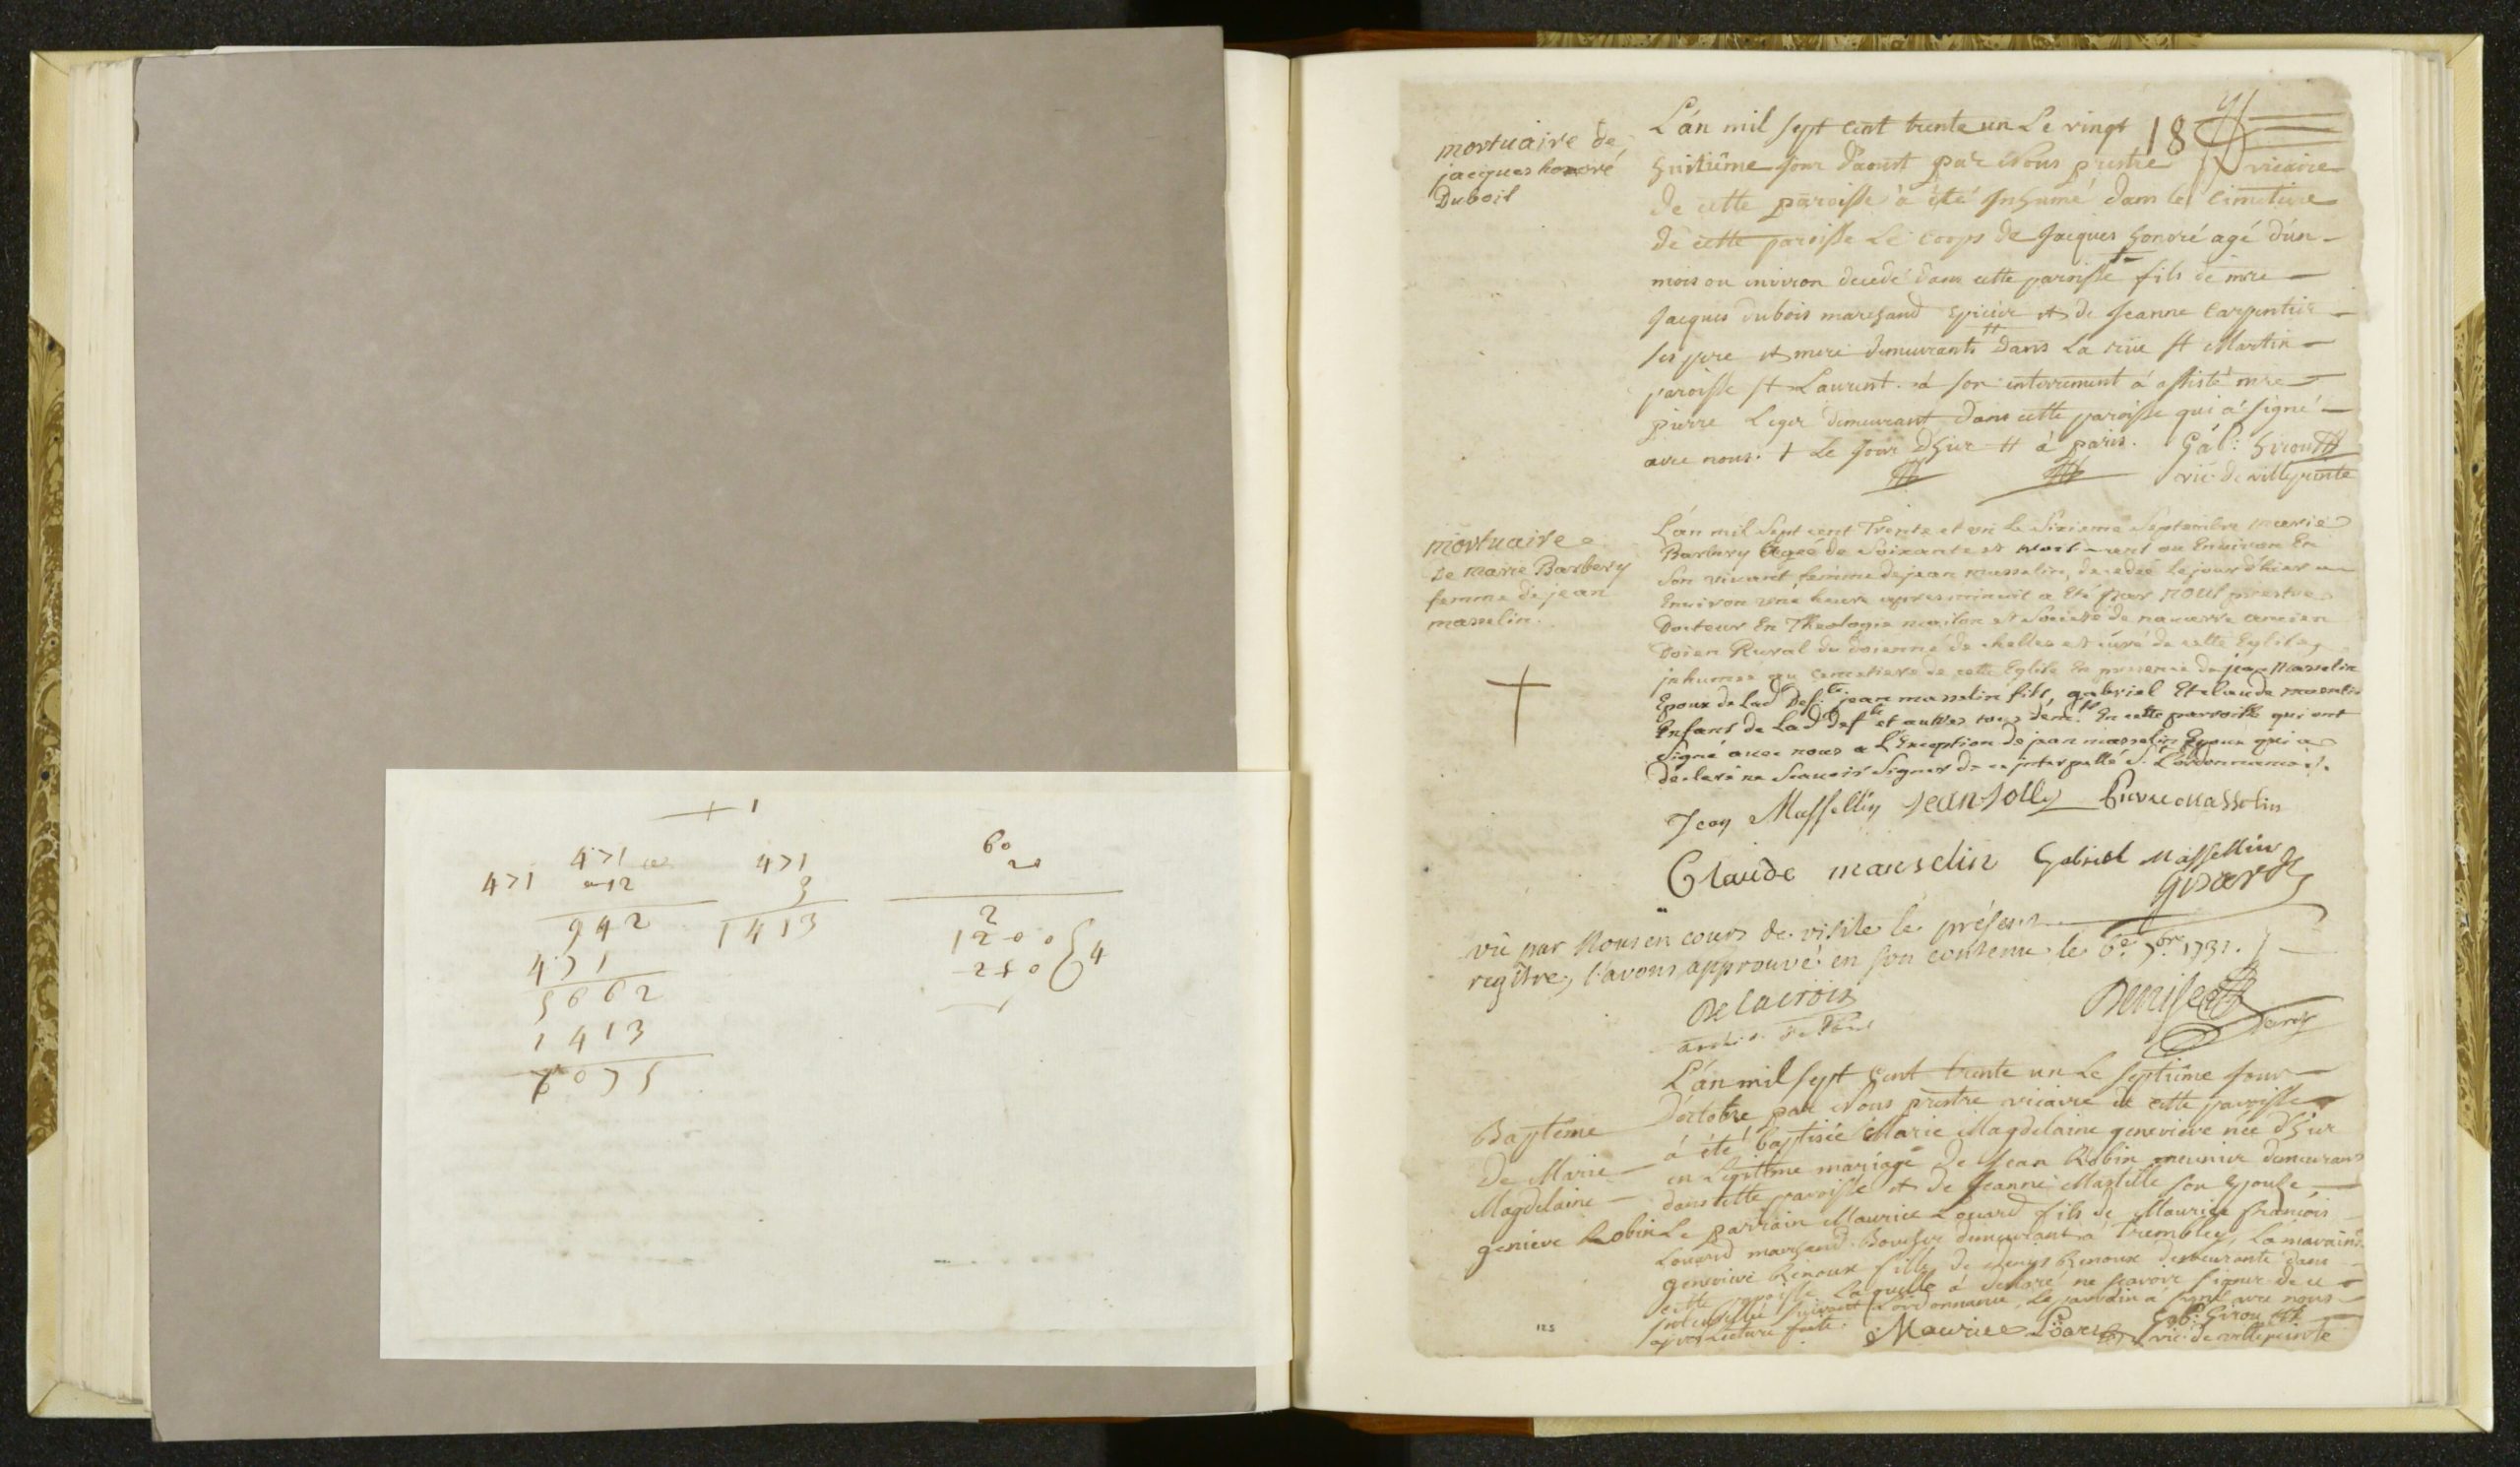 + 1
471
471
12
942
471
5652
1413
471
3
1413
60
20
2
1200
4
mortuaire de
jacques honoré
Duboil
18
L'an mil sept cent trente un Le vingt
huitiême jour d'aoust par Nous prestre vicaire
de cette paroisse à été Inhumé dans le cimetiere
de cette paroisse Le corps de Jacques honoré agé d'un
mois ou environ decedé dans cette paroisse + fils de mre
Jacques dubois marchand epicier et de Jeanne Carpentier
ses pere et mere demeurants # dans La rüe st Martin
paroisse st Laurent. à son enterrement à assisté mre
pierre Leger demeurant dans cette paroisse qui à signé
avec nous. + Le Jour D'hier # à paris. Gab: Giroust
vic. de villepinte
mortuaire
De marie Barbery
femme de jean
masselin.
L'an mil Sept cent Trente et un le Sixieme Septembre marie
Barbery Agée de Soixante et trois ans ou Environ En
Son vivant femme de jean masselin, decedée le jour d'hier
Environ une heure apres minuit a Eté par nous prestre
Docteur En Theologie maison et Societé de navarre ancien
Doien Rural du doienné de chelles et curé de cette Eglise,
jnhumée au cemetiere de cette Eglise En presence de jean Masselin
Epoux de Lad. Def.te jean masselin fils, gabriel Et claude masselin
Enfans de Lad. deff.te et autres tous dem.ts En cette parroisse qui ont
Signé avec nous a L'Exception de jean masselin Epoux qui a
declaré ne Scauoir Signer de ce jnterpellé S.t L'ordonnance.
Jean Massellin jean jolly Pierre Massolin
Claude manselin Gabriel Massellin
Girard
vû par Nous en cours de visite le présent
regitre, l'avons approuvé en son contenu le 6.e 7.bre 1731.
Delacroix
Denise
Baptême
De Marie
Magdelaine
genieve Robin
L'an mil sept cent trente un Le septiême Jour
d'octobre par Nous prestre vicaire de cette paroisse
à été baptisée Marie Magdelaine genevieve née d'hier
en Legitime mariage de Jean Robin meunier demeurant
dans cette paroisse et de Jeanne Martille son Epouse
Le parrain Maurice Louard fils de Maurice François
Louard marchand Boucher demeurant à tremblay, La maraine
genevieve Renoux fille de denys Renoux demeurante dans
cette paroisse Laquelle à declaré ne scavoir signer de ce
interpellée suivant L'ordonnance, Le parrain à signé avec nous
apres Lecture faite.
Maurice Loard
Gab: Giroust
vic. de villepinte
125